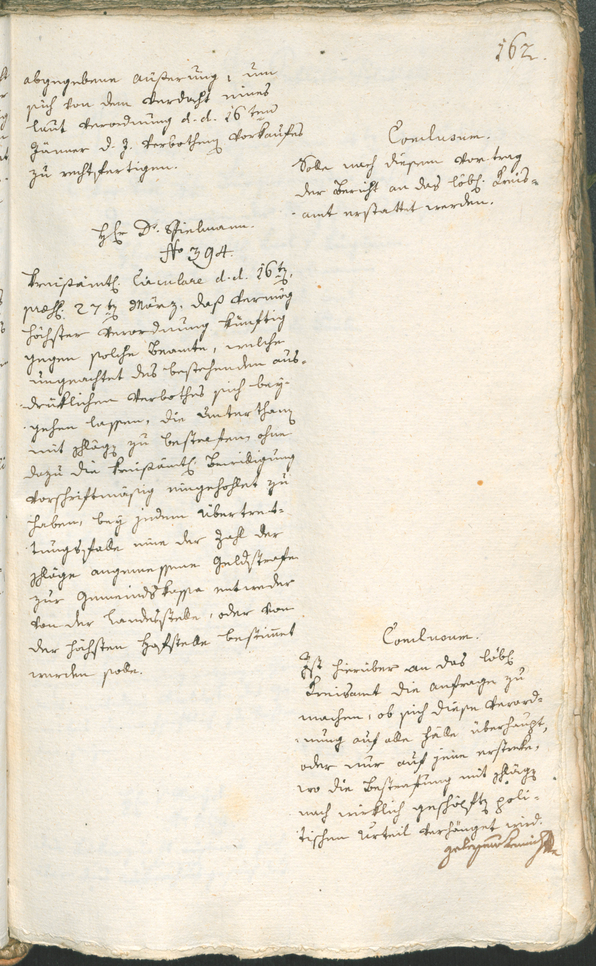 162.
abgegebene Äußerung, um
sich von dem Verdacht eines
laut Verordnung d. d. 16ten
Jänner d. J. verbothenen Verkaufes
zu rechtfertigen.
Conclusum.
Solle nach diesem Vortrag
der Bericht an das löbl. Kreis-
amt erstattet werden.
Hr. Dr. Spielmann.
No 394.
Kreisämtl. Circulare d. d. 16t
praes. 27t März, daß vermög
höchster Verordnung künftig
gegen solche Beamte, welche
ungeachtet des bestehenden aus-
drüklichen Verbothes sich bey-
gehen lassen, die Unterthanen
mit Schlägen zu bestrafen, ohne
dazu die kreisämtl. Bewilligung
vorschriftmäßig eingehohlet zu
haben, bey jedem Übertret-
tungsfalle eine der Zahl der
Schläge angemessene Geldstrafe
zur Gemeindskasse entweder
von der Landesstelle, oder von
der höchsten Hofstelle bestimmet
werden solle.
Conclusum.
Ist hierüber an das löbl.
Kreisamt die Anfrage zu
machen, ob sich diese Verord-
nung auf alle Fälle überhaupt,
oder nur auf jene erstreke,
wo die Bestrafung mit Schlägen
nach wirklich geschöpften poli-
tischen Urteil verhänget wird.